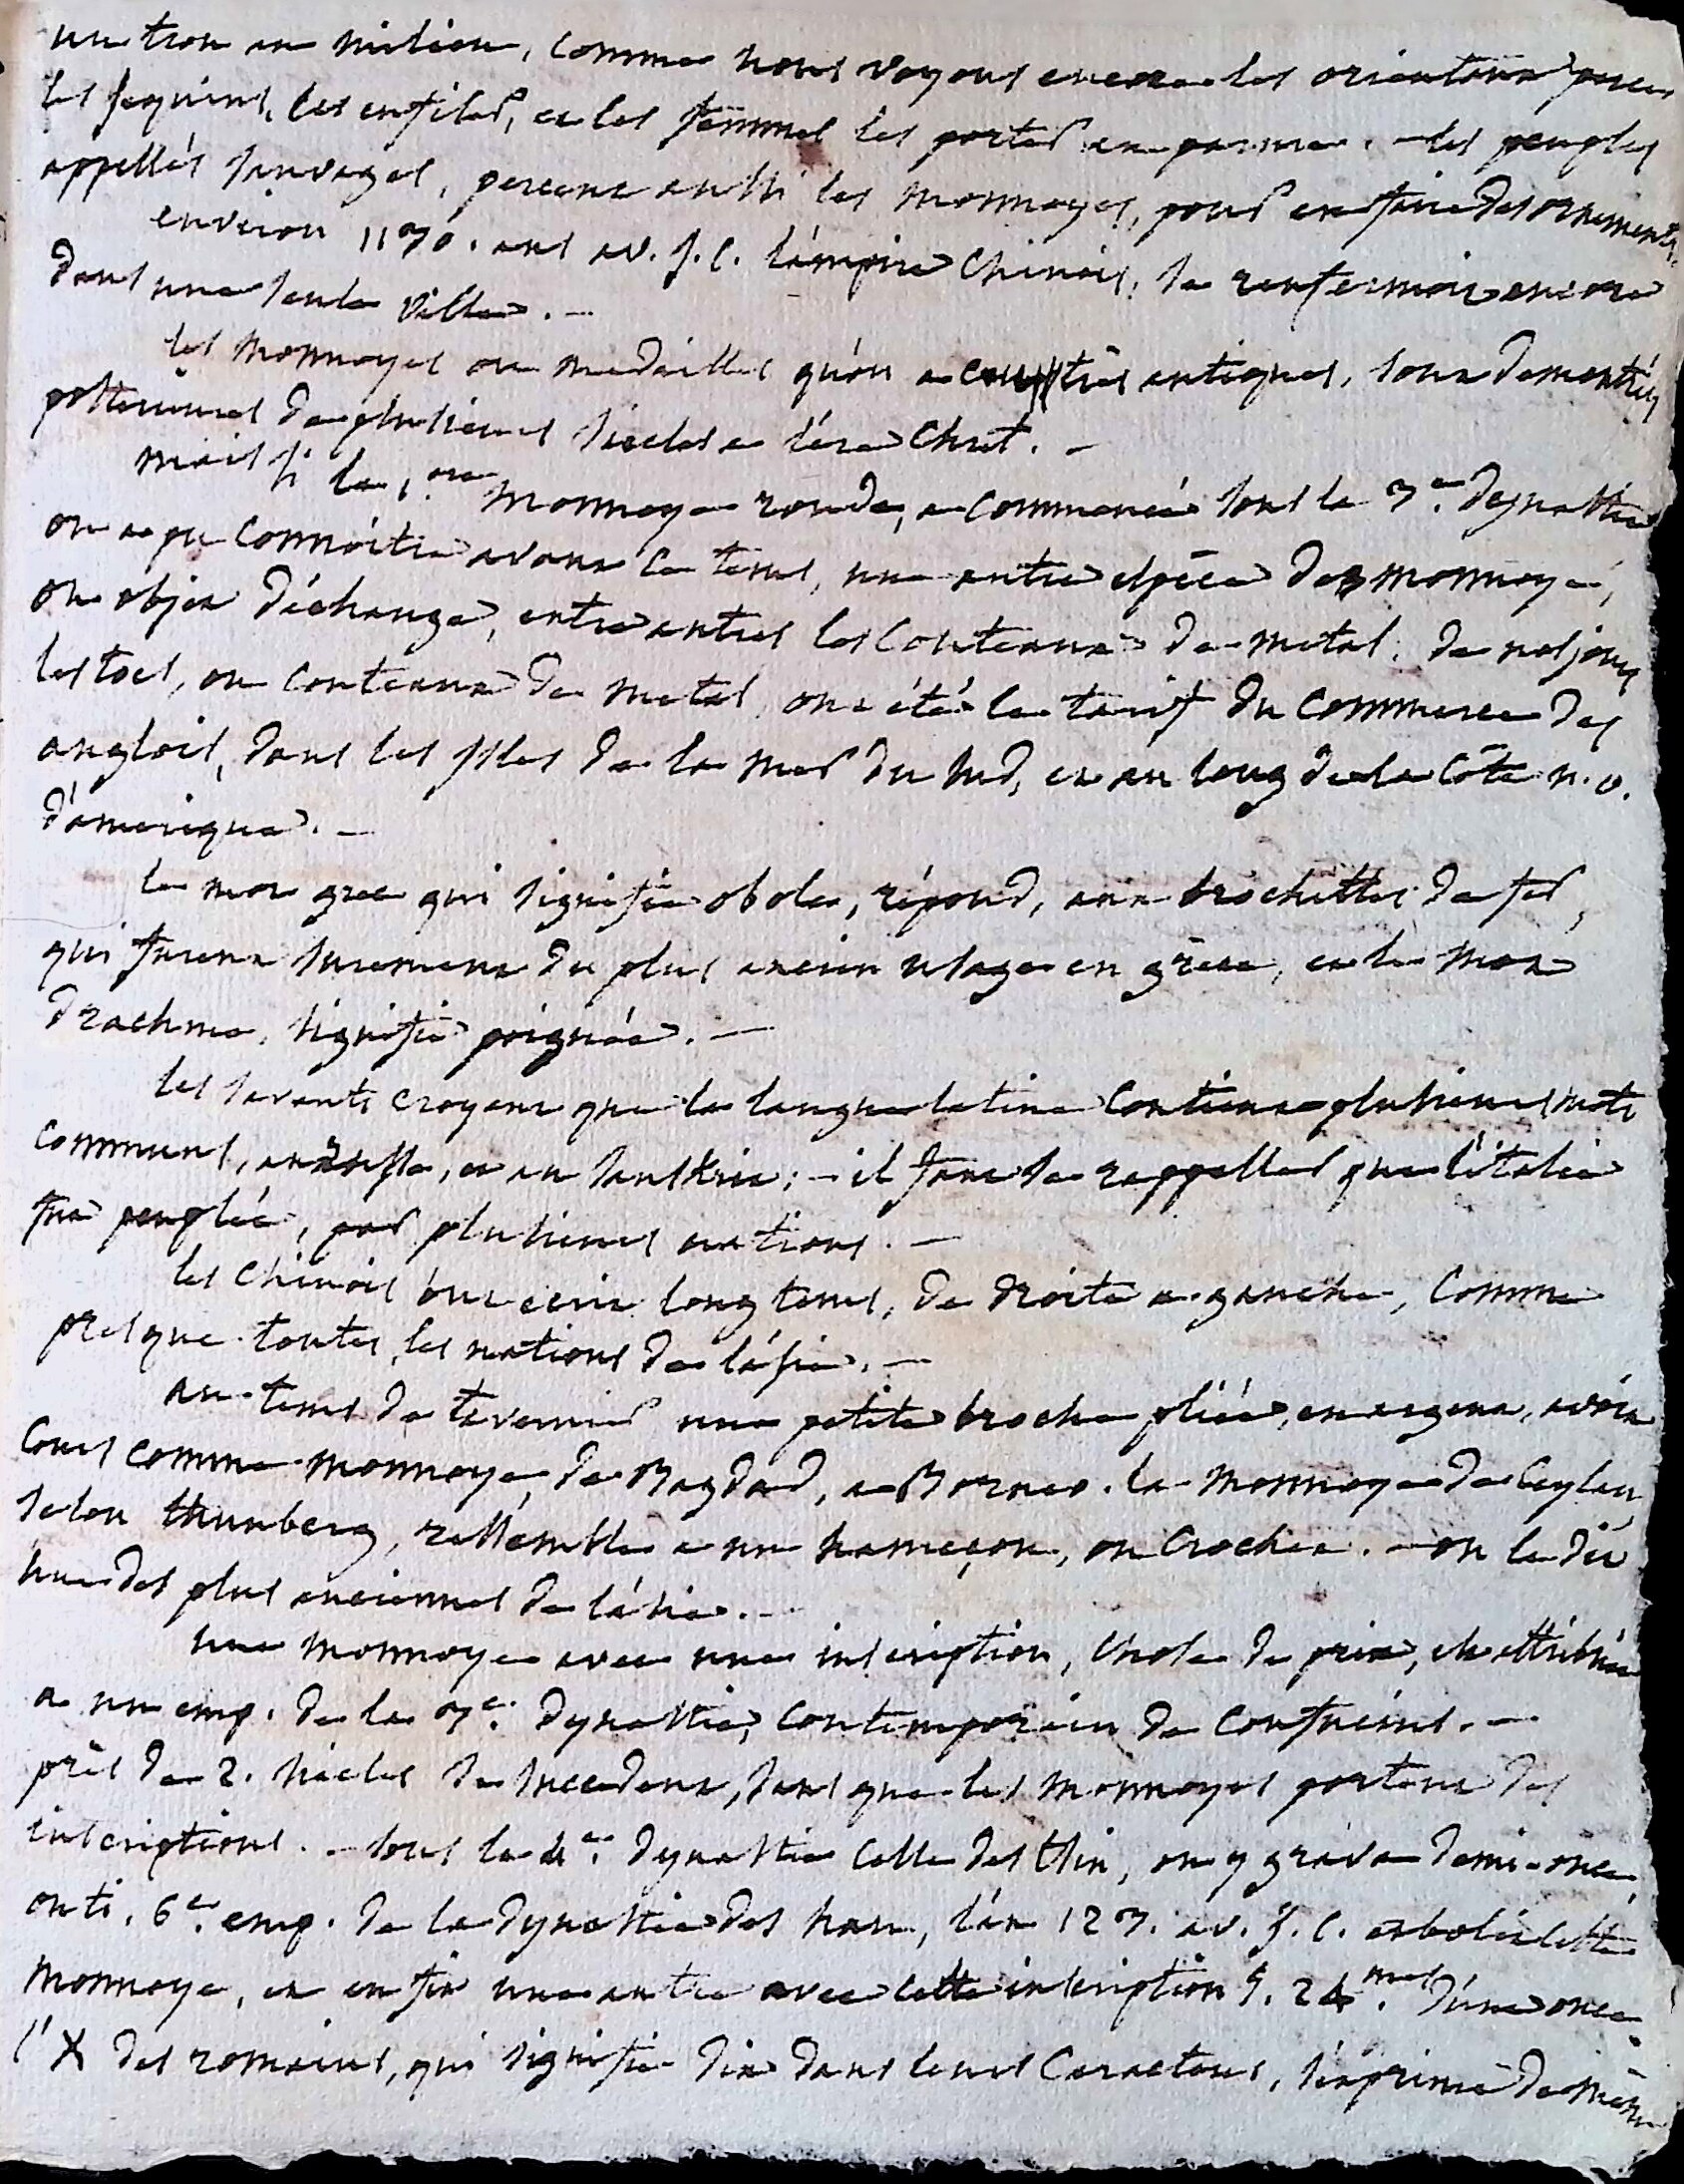 un trou au milieu, comme nous voyons encore les orientaux percer
les sequins, les enfiler, et les femmes les porter en parure. - les peuples
appellés sauvages, percent aussi les monnoyes, pour en faire des ornements.
environ 1170. ans av. J. C. l'empire Chinois, se renfermoit encore
dans une seule ville. -
les monnoyes ou medailles qu'on a cru très antiques, sont demontrées
posterieures de plusieurs siecles a l'ère Chret. -
mais si la 1.ere monnoye ronde, a commencé sous la 3.e dynastie
on a pu connoître avant ce tems, une autre espèce de monnoye,
ou objet d'échange, entre autres les couteaux de metal. de nos jours
les toes, ou couteaux de metal, ont été le tarif du commerce des
anglois, dans les isles de la mer du sud, et au long de la côte n. o.
d'amerique. -
le mot grec qui signifie obole, répond, aux brochettes de fer,
qui furent surement du plus ancien usage en grèce, et le mot
drachme, signifie poignée. -
les savants croyent que la langue latine contient plusieurs mots
communs, au russe, et au sanskrit; - il faut se rappeller que l'italie
fut peuplée, par plusieurs nations. -
les Chinois ont ecrit long tems, de droite a gauche, comme
presque toutes les nations de l'asie. -
au tems de tavernier une petite broche pliée, en argent, avoit
cours comme monnoye, de Bagdad, a Borneo. la monnoye de Ceylan
selon thunberg, ressemble a un hameçon, ou crochet. - on la dit
une des plus anciennes de l'asie. -
une monnoye avec une inscription, chose de prix, est attribuée
a un emp. de la 3.e dynastie, contemporain de Confucius. -
près de 2. siècles se succedent, sans que les monnoyes portent des
inscriptions. - sous la 4.e dynastie celle des thin, on y grava demi-once,
outi, 6.e emp. de la dynastie des han, l'an 123. av. J. C. abolit cette
monnoye, et en fit une autre avec cette inscription 5. 24.mes d'une once.
l'X des romains, qui signifie dix dans leurs caracteres, s'exprime de même